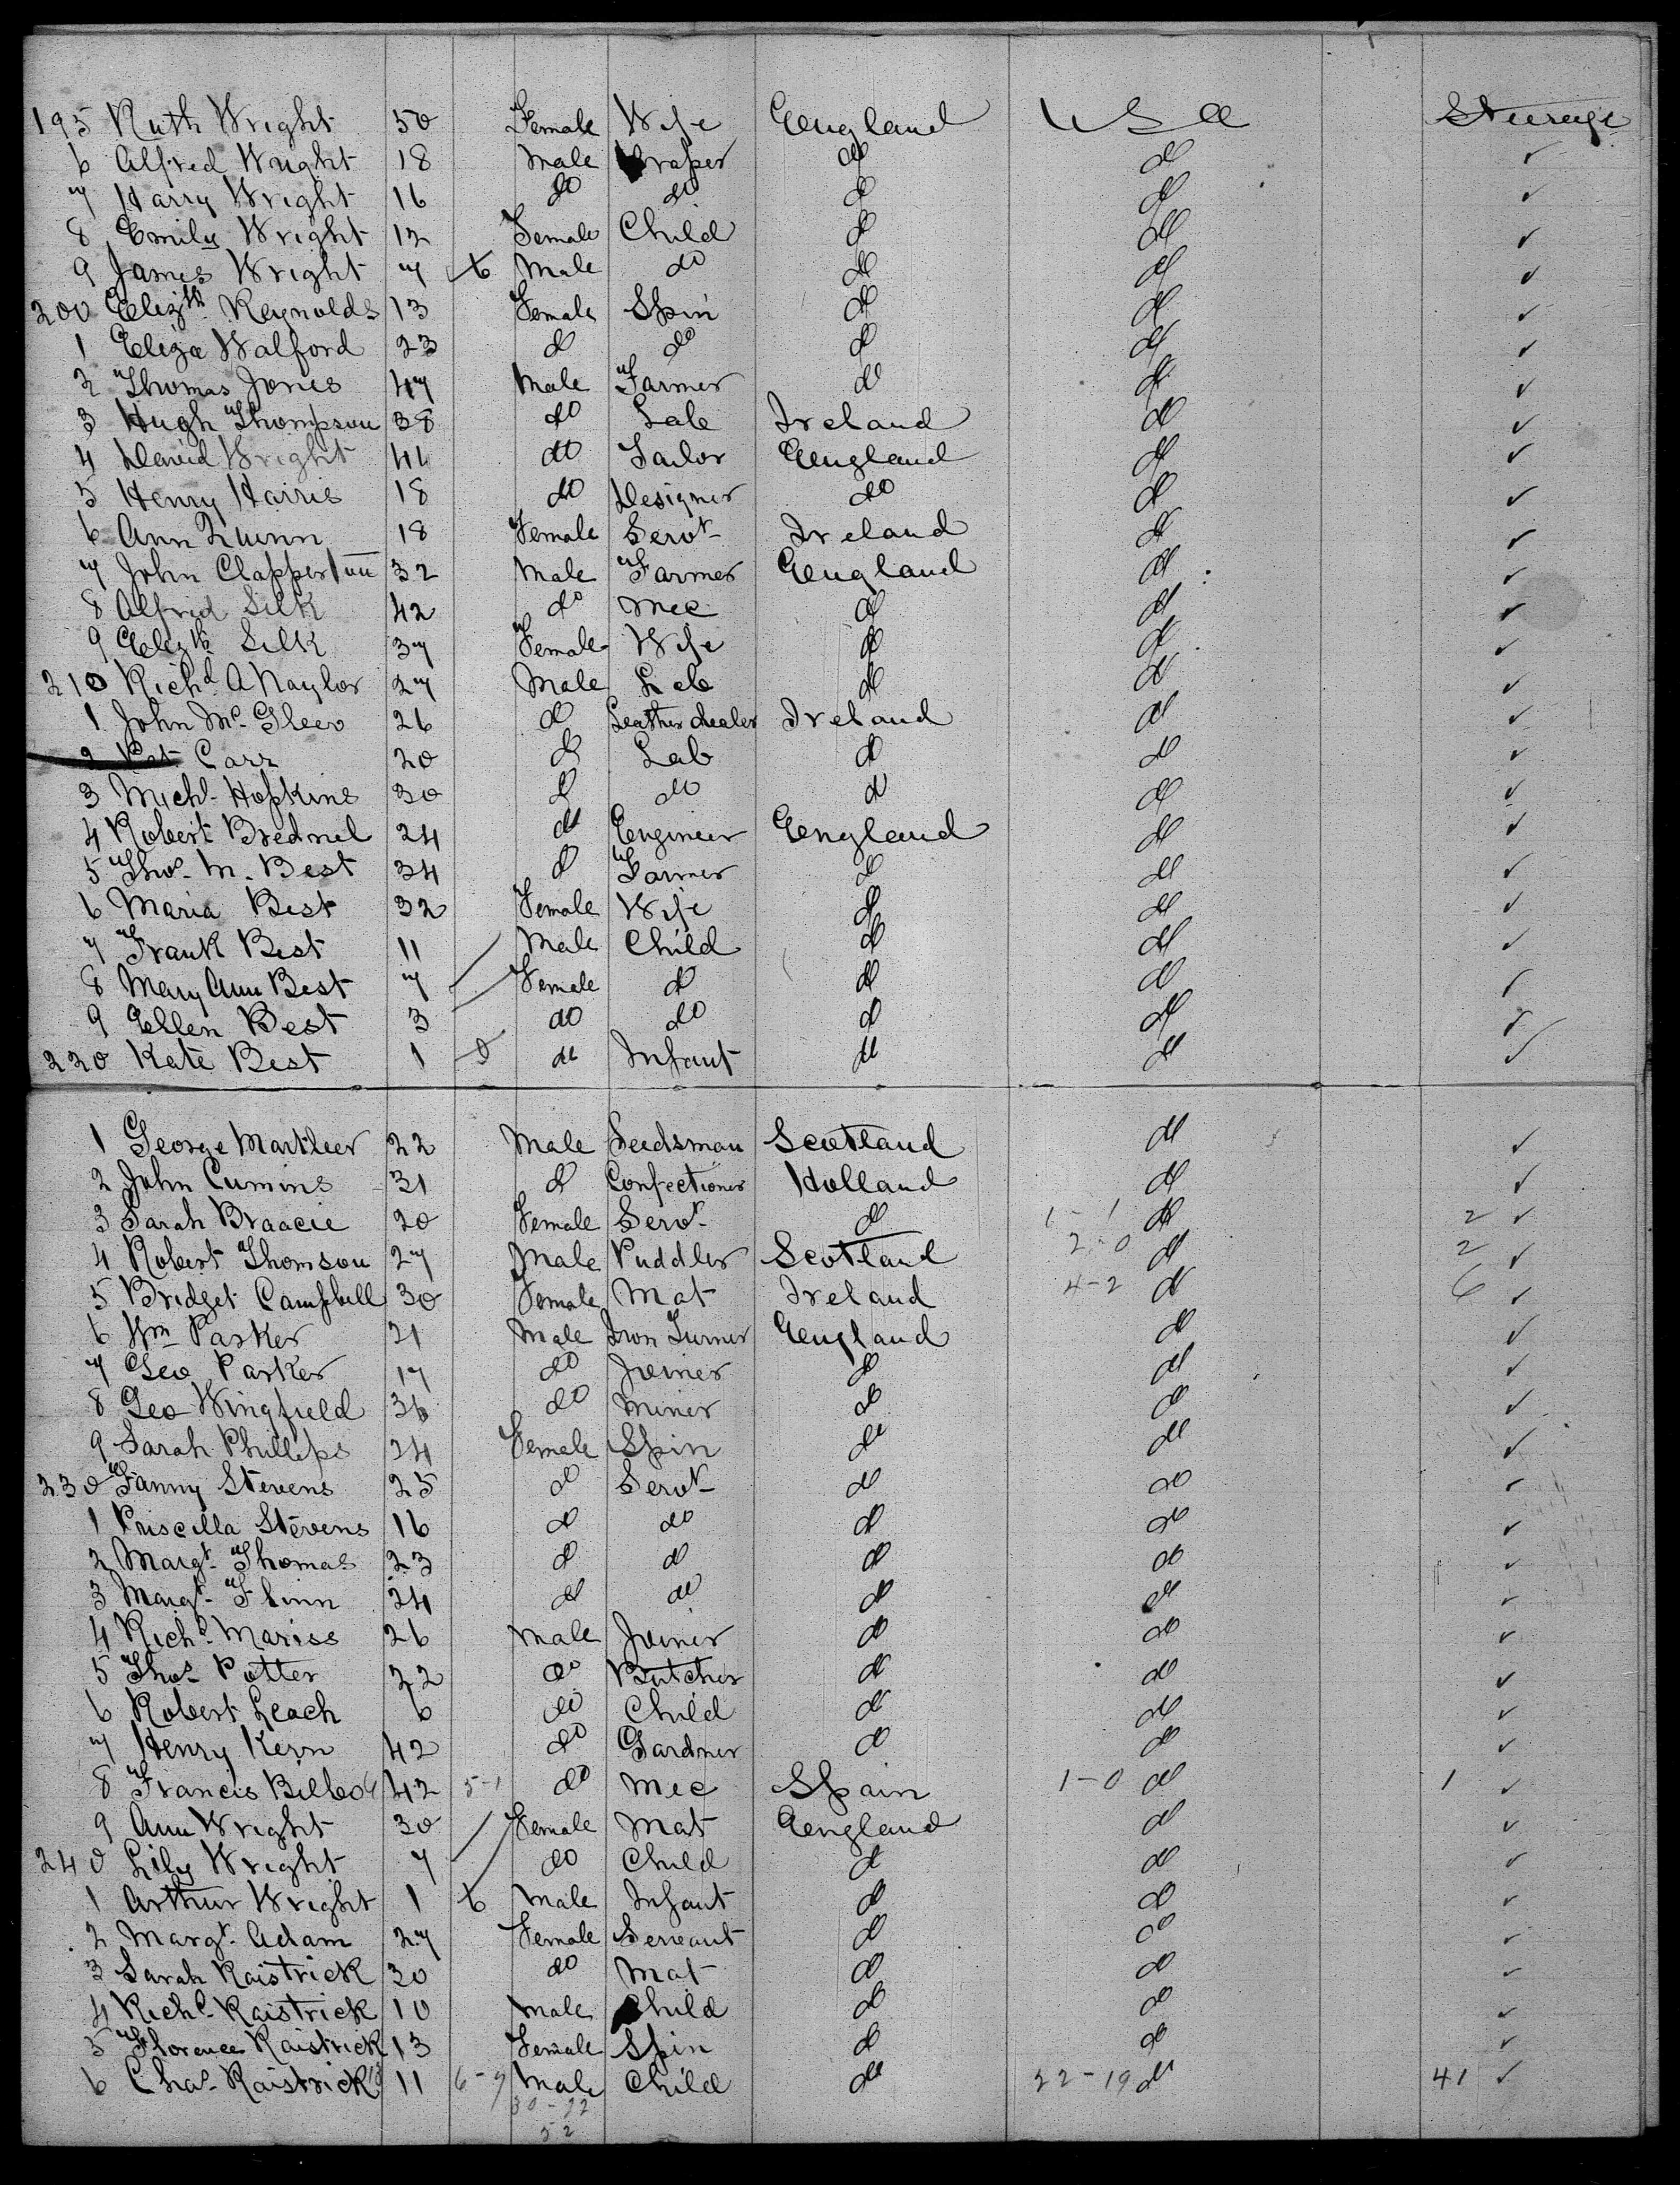 195 Ruth Wright 50 Female Wife England U S A Steerage
6 Alfred Wright 18 Male Draper do do ✓
7 Harry Wright 16 do do do do ✓
8 Emily Wright 12 Female Child do do ✓
9 James Wright 7 Male do do do ✓
200 Elizth Reynolds 13 Female Spin do do ✓
1 Eliza Walford 23 do do do do ✓
2 Thomas Jones 47 Male Farmer do do ✓
3 Hugh Thompson 38 do Lab Ireland do ✓
4 David Wright 41 do Tailor England do ✓
5 Henry Harris 18 do Designer do do ✓
6 Ann Quinn 18 Female Servt Ireland do ✓
7 John Clapperton 32 Male Farmer England do ✓
8 Alfred Silk 42 do Mec do do ✓
9 Elizth Silk 37 Female Wife do do ✓
210 Richd A Naylor 27 Male Lab do do ✓
1 John Mc Gleev 26 do Leather dealer Ireland do ✓
2 Pat Carr 20 do Lab do do ✓
3 Michl Hopkins 30 do do do do ✓
4 Robert Brednel 24 do Engineer England do ✓
5 Thos. M. Best 34 do Farmer do do ✓
6 Maria Best 32 Female Wife do do ✓
7 Frank Best 11 Male Child do do ✓
8 Mary Ann Best 7 Female do do do ✓
9 Ellen Best 3 do do do do ✓
220 Kate Best 1 do Infant do do ✓
1 George Martleer 22 Male Seedsman Scotland do ✓
2 John Cumins 31 do Confectioner Holland do ✓
3 Sarah Braacie 20 Female Servt do 1-1 do 2 ✓
4 Robert Thomson 27 Male Puddler Scotland 2-0 do 2 ✓
5 Bridget Campbell 30 Female Mat Ireland 4-2 do 6 ✓
6 Wm Parker 21 Male Iron Turner England do ✓
7 Geo Parker 17 do Joiner do do ✓
8 Geo Wingfield 36 do Miner do do ✓
9 Sarah Phillips 24 Female Spin do do ✓
230 Fanny Stevens 25 do Servt do do ✓
1 Priscilla Stevens 16 do do do do ✓
2 Margt Thomas 23 do do do do ✓
3 Margt Flinn 24 do do do do ✓
4 Richd Mariss 26 Male Joiner do do ✓
5 Thos Potter 22 do Butcher do do ✓
6 Robert Leach 6 do Child do do ✓
7 Henry Kern 42 do Gardner do do ✓
8 Francis Bilbo 42 5-1 do Mec Spain 1-0 do 1 ✓
9 Ann Wright 30 Female Mat England do ✓
240 Lily Wright 7 do Child do do ✓
1 Arthur Wright 1 Male Infant do do ✓
2 Margt Adam 27 Female Servant do do ✓
3 Sarah Raistrick 30 do Mat do do ✓
4 Richd Raistrick 10 Male Child do do ✓
5 Florence Raistrick 13 Female Spin do do ✓
6 Chas Raistrick 11 6-7 Male Child do 22-19 do 41 ✓
30-22
52